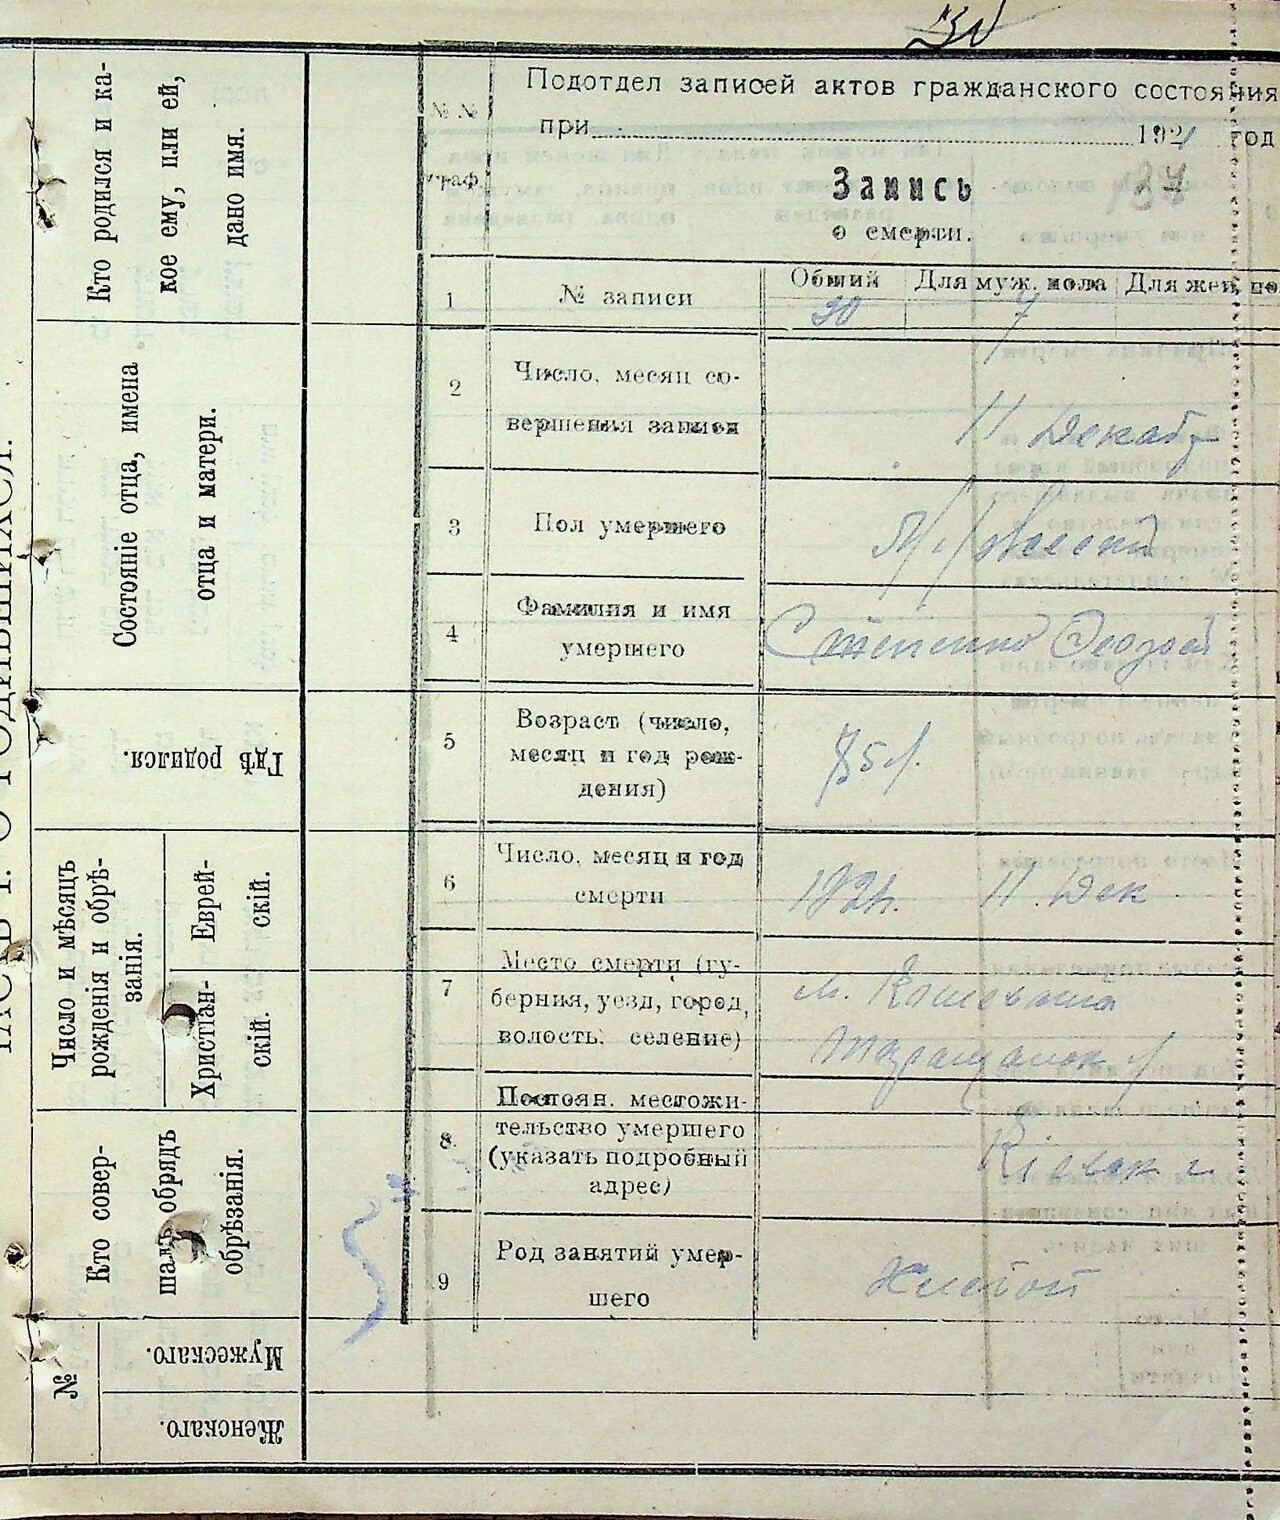 30
Подотдел записей актов гражданского состояния
при 1921 год
№ №
граф.
Запись
187
о смерти.
1 № записи Общий Для муж. пола Для жен. по
30 7
2 Число, месяц со-
вершения записи
11 Декаб
3 Пол умершего Мужеский
4 Фамилия и имя
умершего
5 Возраст (число,
месяц и год рож-
дения)
85 л.
6 Число, месяц и год
смерти
1921. 11 Дек
7 Место смерти (гу-
берния, уезд, город,
волость, селение)
м.
8. Постоян. местожи-
тельство умершего
(указать подробный
адрес)
Киевск
9 Род занятий умер-
шего
Кто родился и ка-
кое ему, или ей,
дано имя.
Состояніе отца, имена
отца и матери.
Гдѣ родился.
Число и мѣсяцъ
рожденія и обрѣ-
занія.
Еврей-
скій.
Христіан-
скій.
Кто совер-
шалъ обрядъ
обрѣзанія.
№
Мужескаго.
Женскаго.